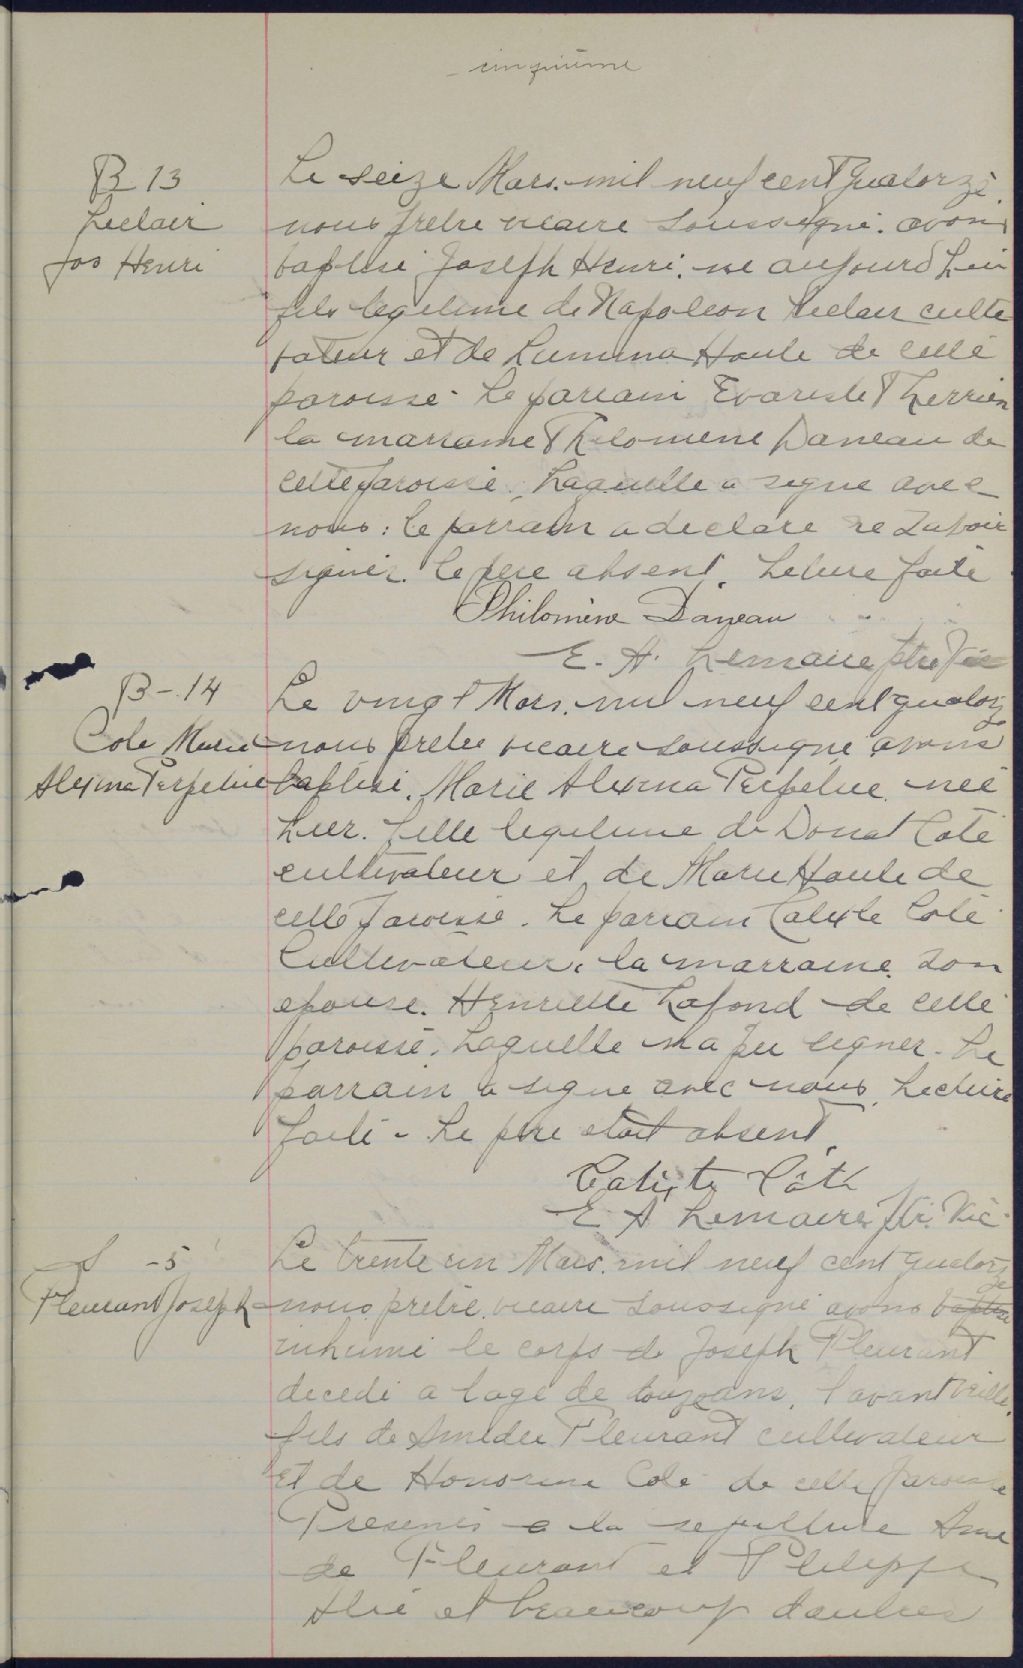 cinquième
B 13
Leclair
Jos Henri
Le seize Mars. mil neuf cent quatorze.
nous prêtre vicaire soussigné. avons
baptisé Joseph Henri. né aujourd'hui
fils légitime de Napoleon Leclair culti
vateur et de Lumina Houle de cette
paroisse. Le parrain Evariste Therrien
la marraine Philomene Daneau de
cette paroisse. Laquelle a signé avec
nous: le parrain a déclaré ne savoir
signer. le père absent. Lecture faite
Philomène Daneau
E. A. Lemaire ptre Vic
B - 14
Cote Marie
Alexina Perpetue
Le vingt Mars. mil neuf cent quatorze
nous prêtre vicaire soussigné avons
baptisé. Marie Alexina Perpetue née
hier. fille légitime de Donat Coté
cultivateur et de Marie Houle de
cette paroisse. Le parrain Calixte Coté
Cultivateur. la marraine son
epouse. Henriette Lafond de cette
paroisse. Laquelle n'a pu signer. Le
parrain a signé avec nous. Lecture
faite - Le père était absent.
Calixte Côté
E A Lemaire Ptr. Vic.
S - 5
Fleurant Joseph
Le trente un Mars. mil neuf cent quatorze
nous prêtre vicaire soussigné avons baptisé
inhumé le corps de Joseph Fleurant
decedé a l'age de douze ans, l'avant veille.
fils de Amedee Fleurant cultivateur
et de Honorine Coté de cette paroisse
Presents a la sepulture Ame
de Fleurant et Philippe
Alie et beaucoup d'autres